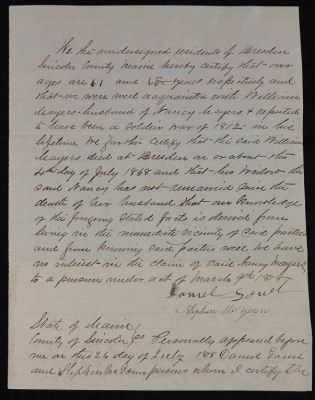 We the undersigned residents of Dresden
Lincoln County Maine hereby certify that our
ages are 61 and years respectively and
that we were well acquainted with William
Mayers husband of Nancy Mayers &
to have been a soldier war of 1812 in his
lifetime We further certify that the said William
Mayers died at Dresden on or about the
4th day of July 1868 and that his Widow the
said Nancy has not remarried since the
death of her husband, that our Knowledge
of the forgoing stated facts is derived from
living in the immediate vicinity of said parties
and from knowing said parties well We have
no interest in the claim of said Nancy Mayers
to a pension under act of March 9th 1878
Daniel
Stephen
State of Maine
County of Lincoln ss Personally appeared before
me on this 26 day of July Daniel
and Stephen persons whom I certify to be